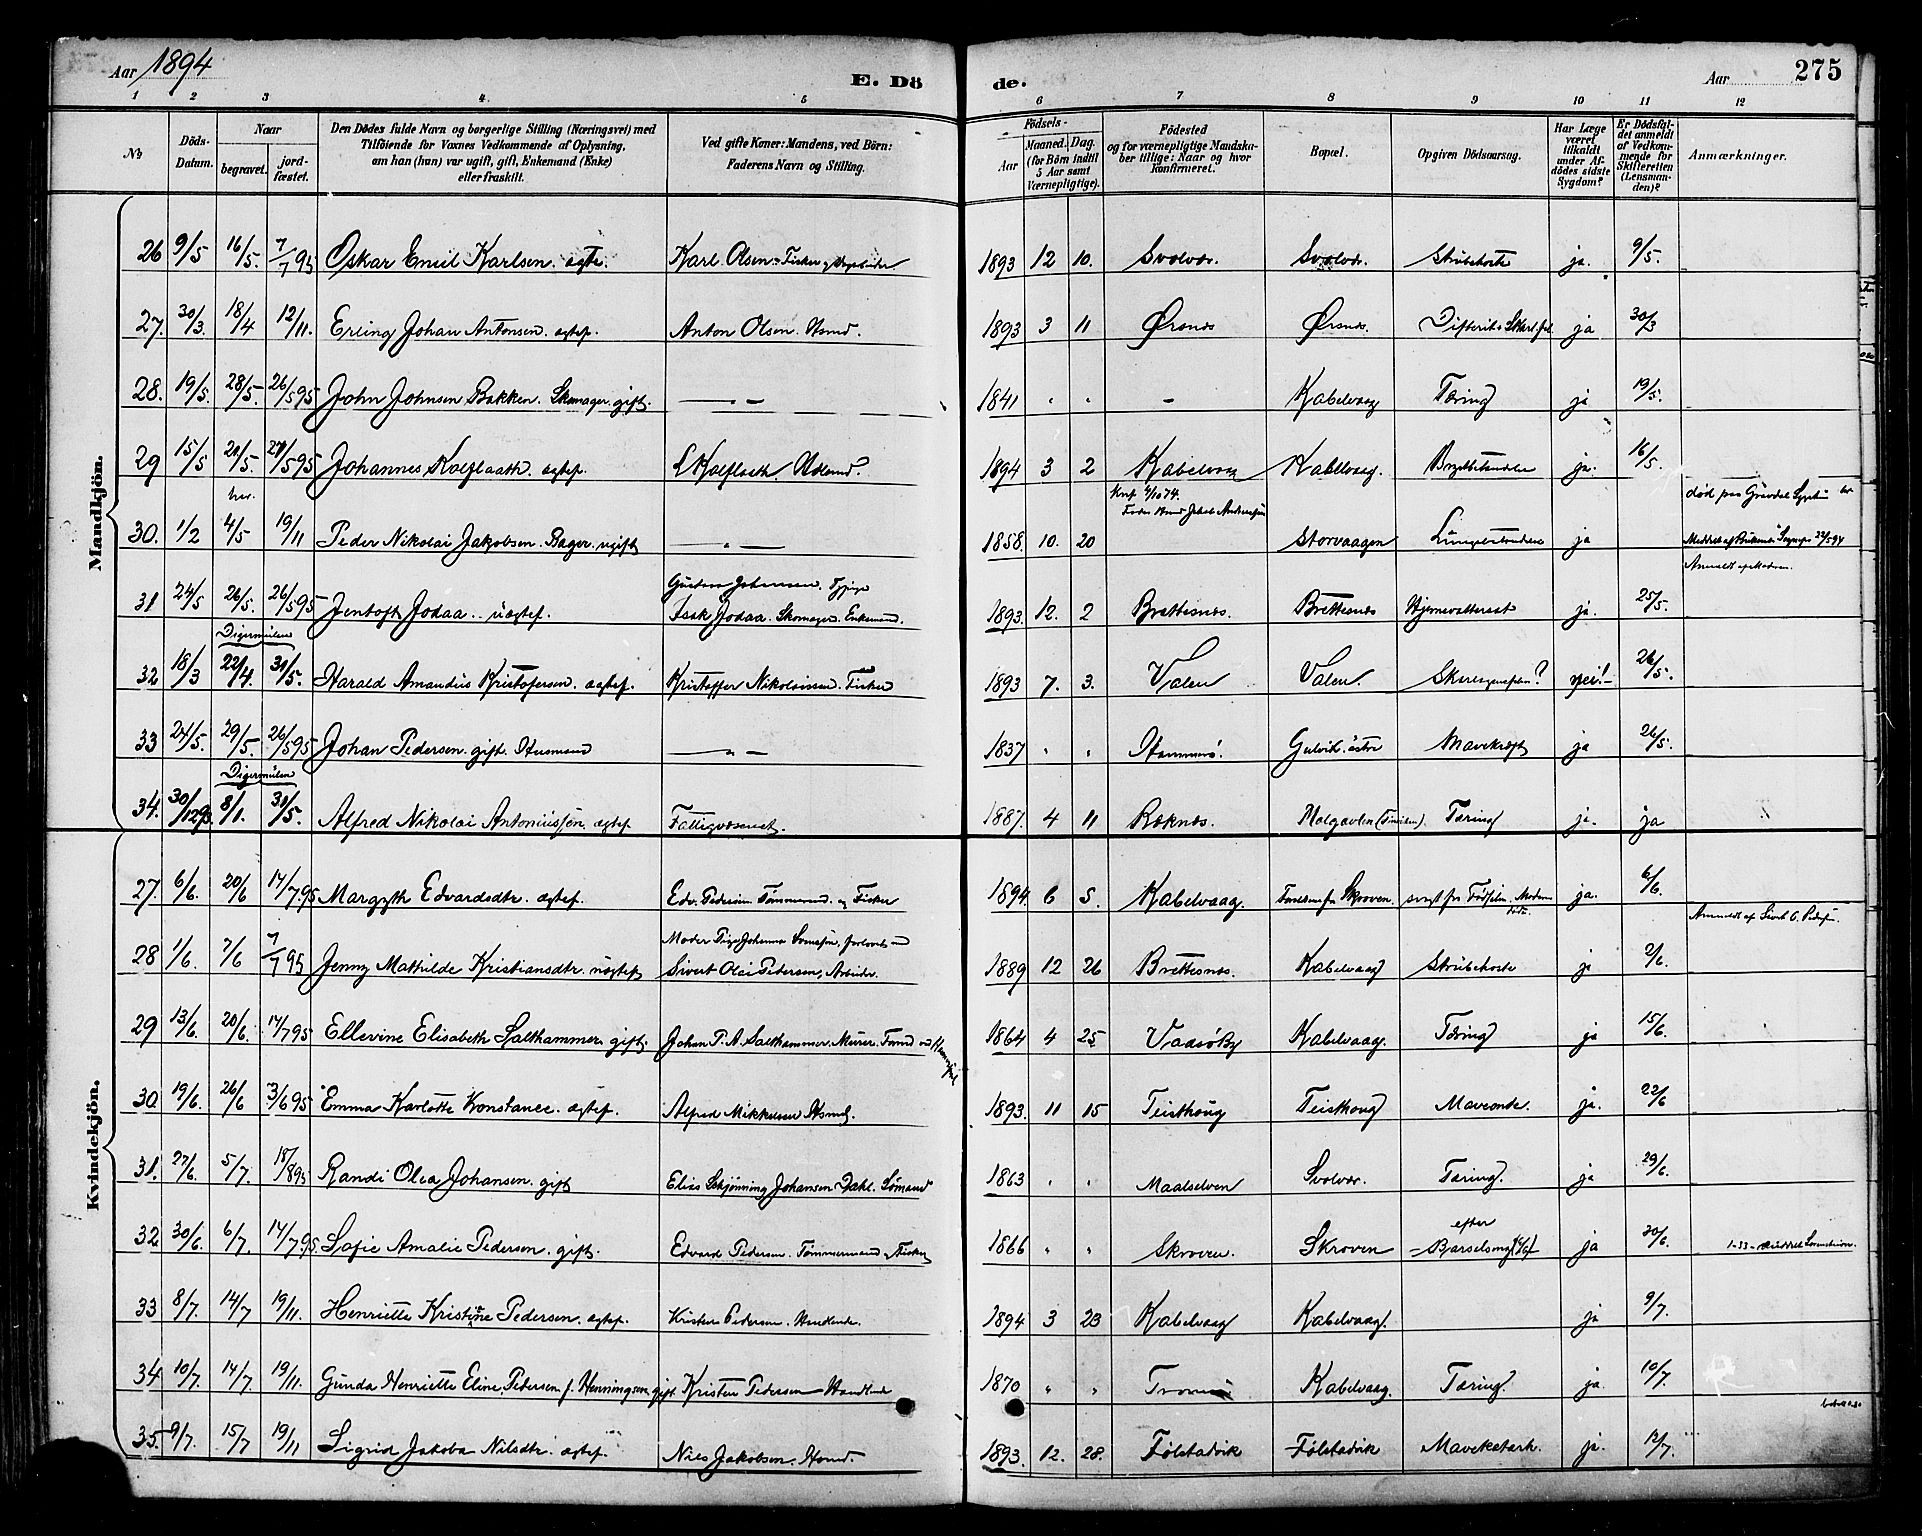 Aar 1894
E. Dö
de.
Aar
275
1 2 3 4. 5 6 7 8 9 10 11 12
№
Döds-Datum.
Naar
begravet.
jord-fæstet.
Den Dödes fulde Navn og borgerlige Stilling (Næringsvei) med
Tilföiende for Voxnes Vedkommende af Oplysning,
om han (hun) var ugift, gift, Enkemand (Enke)
eller fraskilt.
Ved gifte Koner: Mandens, ved Börn:
Faderens Navn og Stilling.
Födsels-
Aar
Maaned. Dag.
(for Börn indtil
5 Aar samt
Værnepligtige).
Födested
og for værnepligtige Mandska-
ber tillige: Naar og hvor
konfirmeret.
Bopæl.
Opgiven Dödsaarsag.
Har Læge
været
tilkaldt
under Af-
dödes sidste
Sygdom?
Er Dödsfal-
det anmeldt
af Vedkom-
mende for
Skifteretten
(Lensman-
den)?
Anmærkninger.
Mandkjön.
26 9/5 16/5. 7/7 95 Oskar Emil Karlsen. ægte. Karl Olsen. Fisker 1893 12 10. Svolvær. Svolvær. Strubehoste ja. 9/5.
27. 30/3. 18/4 12/11. Erling Johan Antonsen. ægtef. Anton Olsen. Hsmd. 1893 3 11 Ørsnes Ørsnes. Difterit ja 30/3
28. 19/5. 28/5. 26/5 95 John Johnsen Bakken. Skomager. gift. — " — 1841 " " - Kabelvaag Tæring ja 19/5.
29 15/5 21/5. 5 95 Johannes Kolflaath. ægtef. L Kolflaath. 1894 3 2 Kabelvaag Kabelvaag. ja. 16/5.
her. Knf 4/10 74. død paa Gravdal
30. 1/2 4/5 19/11 Peder Nikolai Jakobsen. Bager. ugift — " — 1858. 10. 20 Storvaagen ja
31 24/5 26/5. 26/5 95 Jentoft Jodaa.. uægtef. Isak Jodaa. Skomager. Enkemand. 1893. 12. 2 Brettesnes. Brettesnes ja. 25/5.
Digermulen
32 18/3 22/4. 31/5. Harald Amandus Kristofersen. ægtef. Kristoffer Nikolaissen. Fisker 1893 7. 3. Valen Valen. nei! 26/5.
33 24/5. 29/5. 26/5 95 Johan Pedersen. gift. Husmand — " — 1837 " " Hammerö. Mavekræft ja 26/5.
Digermulen
34. 30/12 93 8/1. 31/5. Alfred Nikolai Antoniussen. ægtef. Fattigvæsenet. 1887. 4 11 Ræknes. Tæring ja. ja
Kvindekjön.
27. 6/6. 20/6 14/7 95 Margyth Edvardsdtr. ægtef. Edv. Pedersen Tømmermd. og Fisker 1894. 6 5. Kabelvaag. Skroven. ja. 6/6.
28 1/6. 7/6 7/7 95 Jenny Mathilde Kristiansdtr. uægtef. Sivert Olai Pedersen, Arbeider. 1889 12 26 Brettesnes. Kabelvaag Strubehoste ja 2/6.
29 13/6. 20/6. 14/7 95 Ellevine Elisabeth Salthammer. gift. Johan P. A. Salthammer. Murer. 1864 4 25 Vadsöby Kabelvaag. Tæring ja 15/6.
30 19/6. 26/6 3/6 95 Emma Karlotte Konstance. ægtef. Alfred Mikkelsen Hsmd. 1893. 11 15 Teisthoug Teisthoug Maveonde. ja. 22/6
31. 27/6. 5/7. 18/8 95 Randi Olea Johansen. gift Elias Schjønning Johansen Dahl. Sömand 1863 " " Maalselven Svolvær. Tæring. ja 29/6.
efter
32 30/6. 6/7. 14/7 95. Sofie Amalie Pedersen. gift. Edvard Pedersen. Tömmermand & Fisker 1866 " " Skroven. Skroven Barselseng ja 30/6.
33 8/7. 14/7 19/11. Henriette Kristine Pedersen. ægtef. Kristen Pedersen. Handlende. 1894 3 23 Kabelvaag Kabelvaag. ja 9/7.
34 10/7. 14/7 19/11. Gunda Henriette Eline Pedersen f. Henningsen, gift. Kristen Pedersen 1870 " " Kabelvaag. Tæring. ja. 10/7.
35. 9/7. 15/7 19/11 Sigrid Jakoba Nilsdtr. ægtef. Nils Jakobsen. Hsmd. 1893. 12. 28. Følstadvik Følstadvik Mavekatarh. ja. 12/7.